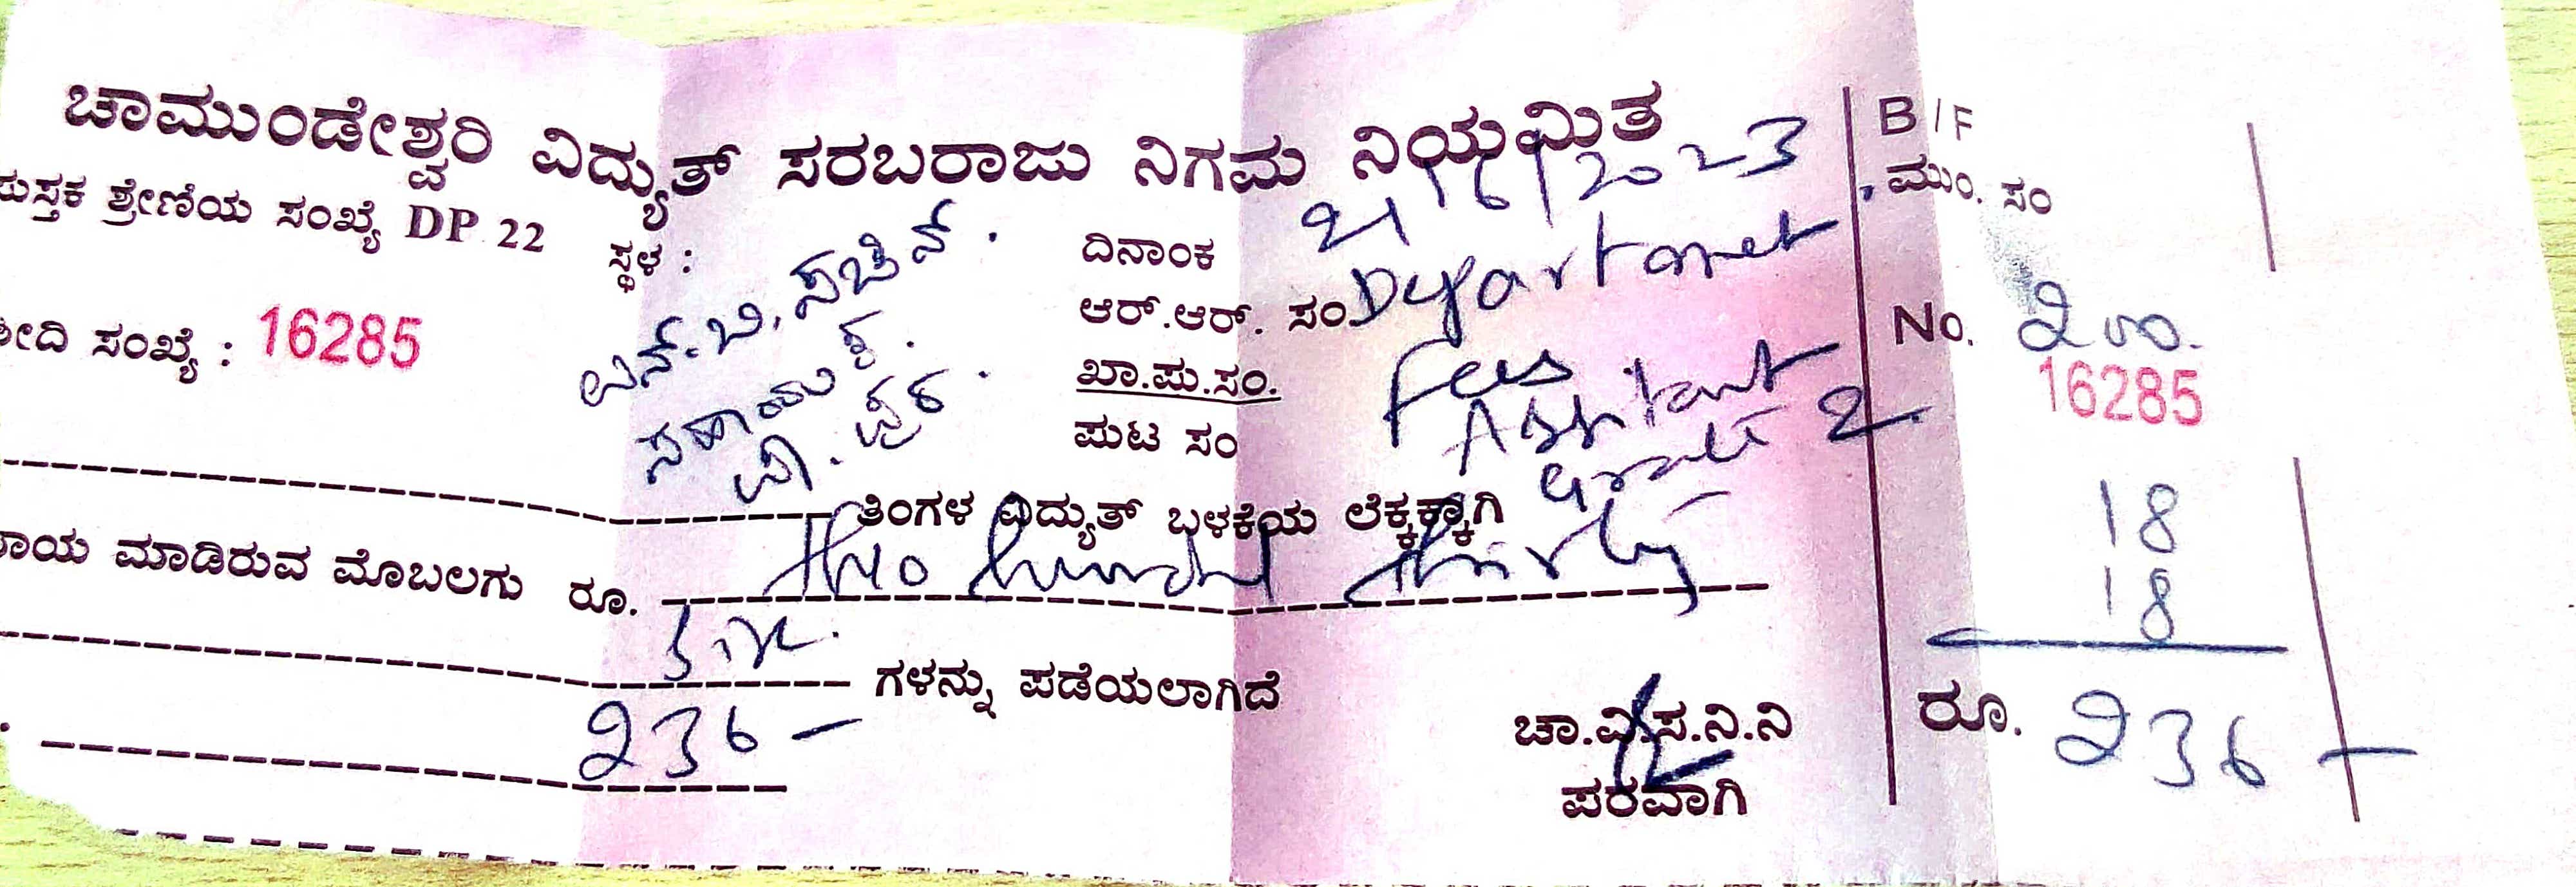 ಚಾಮುಂಡೇಶ್ವರಿ ವಿದ್ಯುತ್ ಸರಬರಾಜು ನಿಗಮ ನಿಯಮಿತ
ಪುಸ್ತಕ ಶ್ರೇಣಿಯ ಸಂಖ್ಯೆ DP 22
ಸ್ಥಳ :
ಎನ್.ಬಿ. ಸಚಿನ್.
ಸಹಾಯಕ.
ದಿನಾಂಕ 21/6/2023
ಆರ್.ಆರ್. ಸಂ Departmet
ಖಾ.ಪು.ಸಂ. fees
ಪುಟ ಸಂ Assitant
2
ಸಂಖ್ಯೆ : 16285
ತಿಂಗಳ ವಿದ್ಯುತ್ ಬಳಕೆಯ ಲೆಕ್ಕಕ್ಕಾಗಿ
ಮಾಡಿರುವ ಮೊಬಲಗು ರೂ. two hundred thirty
six
ಗಳನ್ನು ಪಡೆಯಲಾಗಿದೆ
236-
ಚಾ.ವಿ.ಸ.ನಿ.ನಿ
ಪರವಾಗಿ
B/F
ಮುಂ. ಸಂ
No. 200.
16285
18
18
ರೂ. 236-